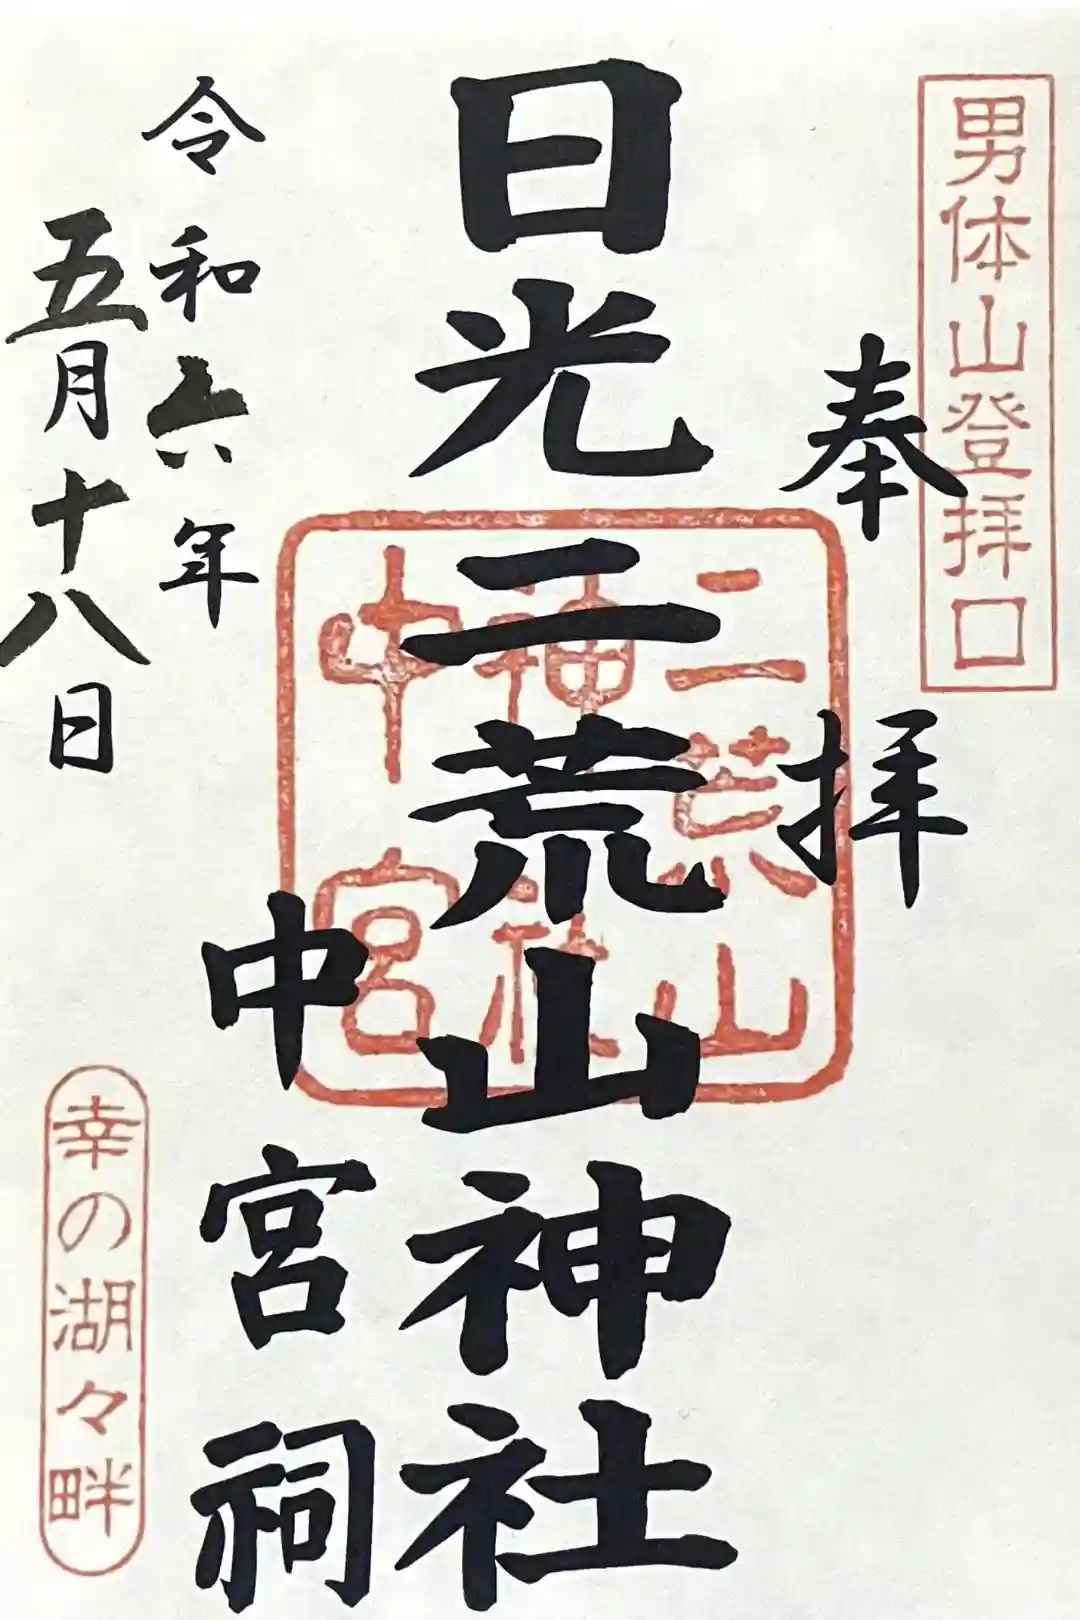 男体山登拝口
奉拝
日光二荒山神社
中宮祠
二荒山
神社
中宮
令和六年
五月十八日
幸の湖々畔